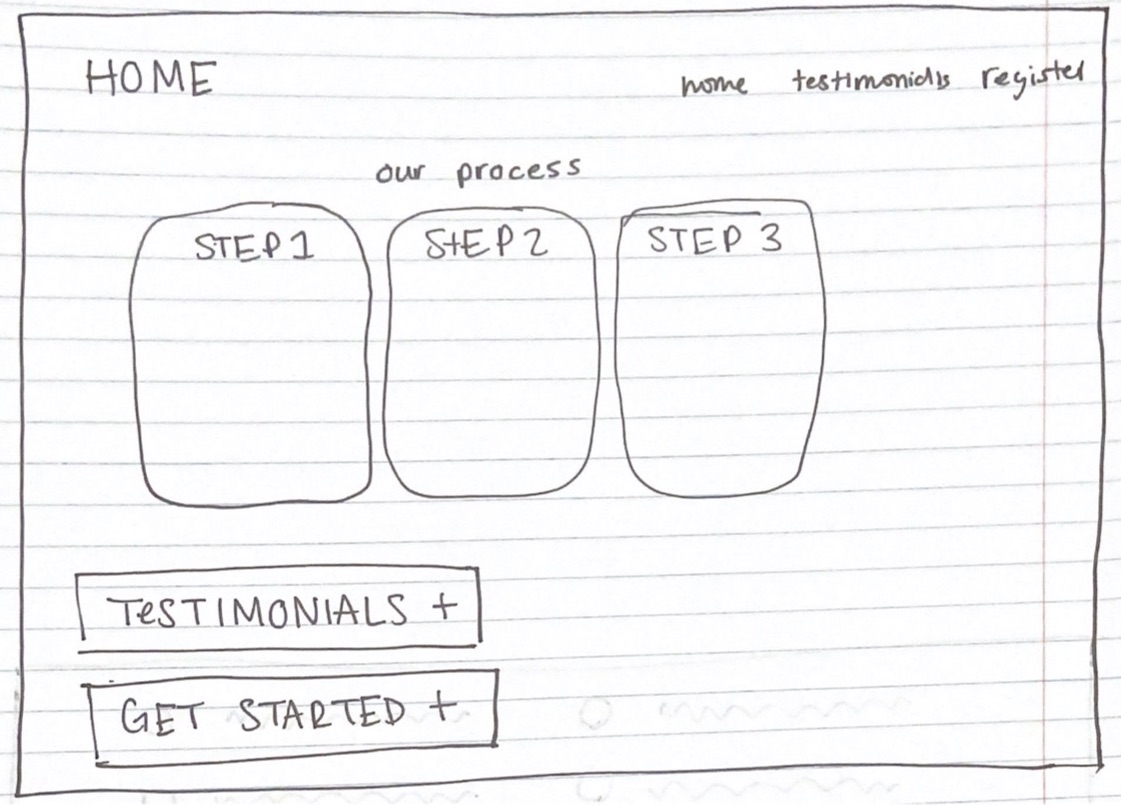 HOME home testimonials register
our process
STEP 1 STEP 2 STEP 3
TeSTIMONIALS +
GET STARTED +